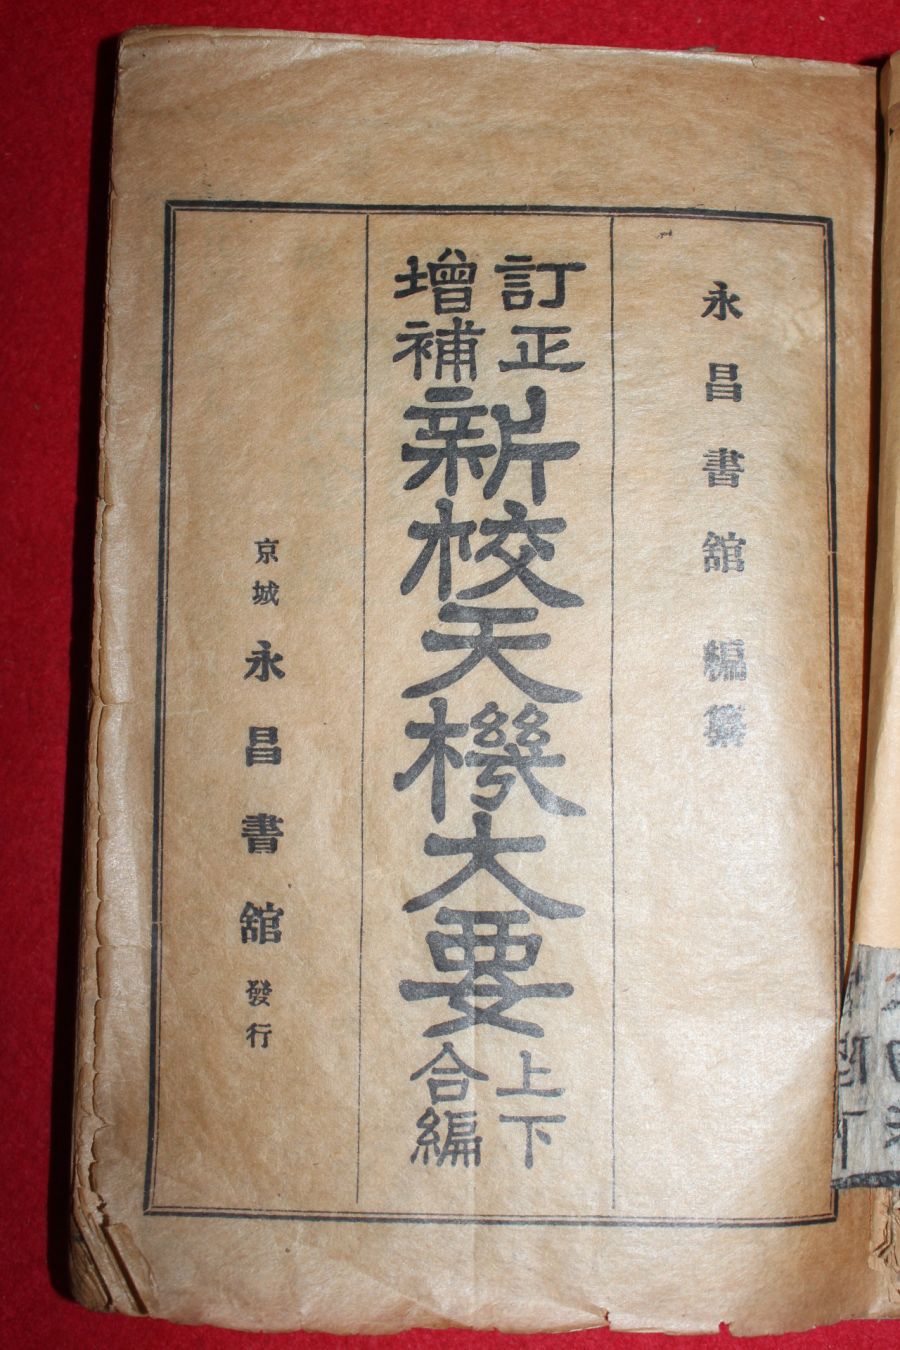 永昌書舘編纂
訂正
增補
新校天機大要
上下
合編
京城 永昌書舘 發行